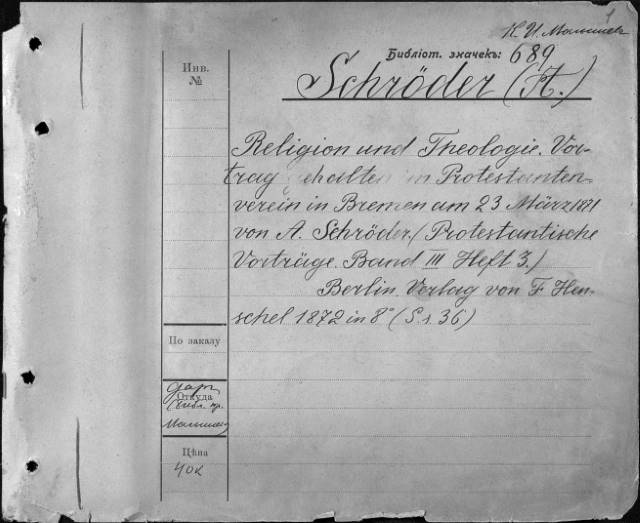 1
К. И. Малышев
Библіот. значекъ: 689
Schröder (A.)
Инв.
№
Religion und Theologie. Vor-
trag gehalten im Protestanten
verein in Bremen am 23 März 1871
von A. Schröder. (Protestantische
Vorträge. Band III Heft 3.)
Berlin. Verlag von F. Hen-
schel 1872 in 8° (S. 1. 36)
По заказу
Откуда
дар
библ. пр.
Малышев
Цѣна
40к